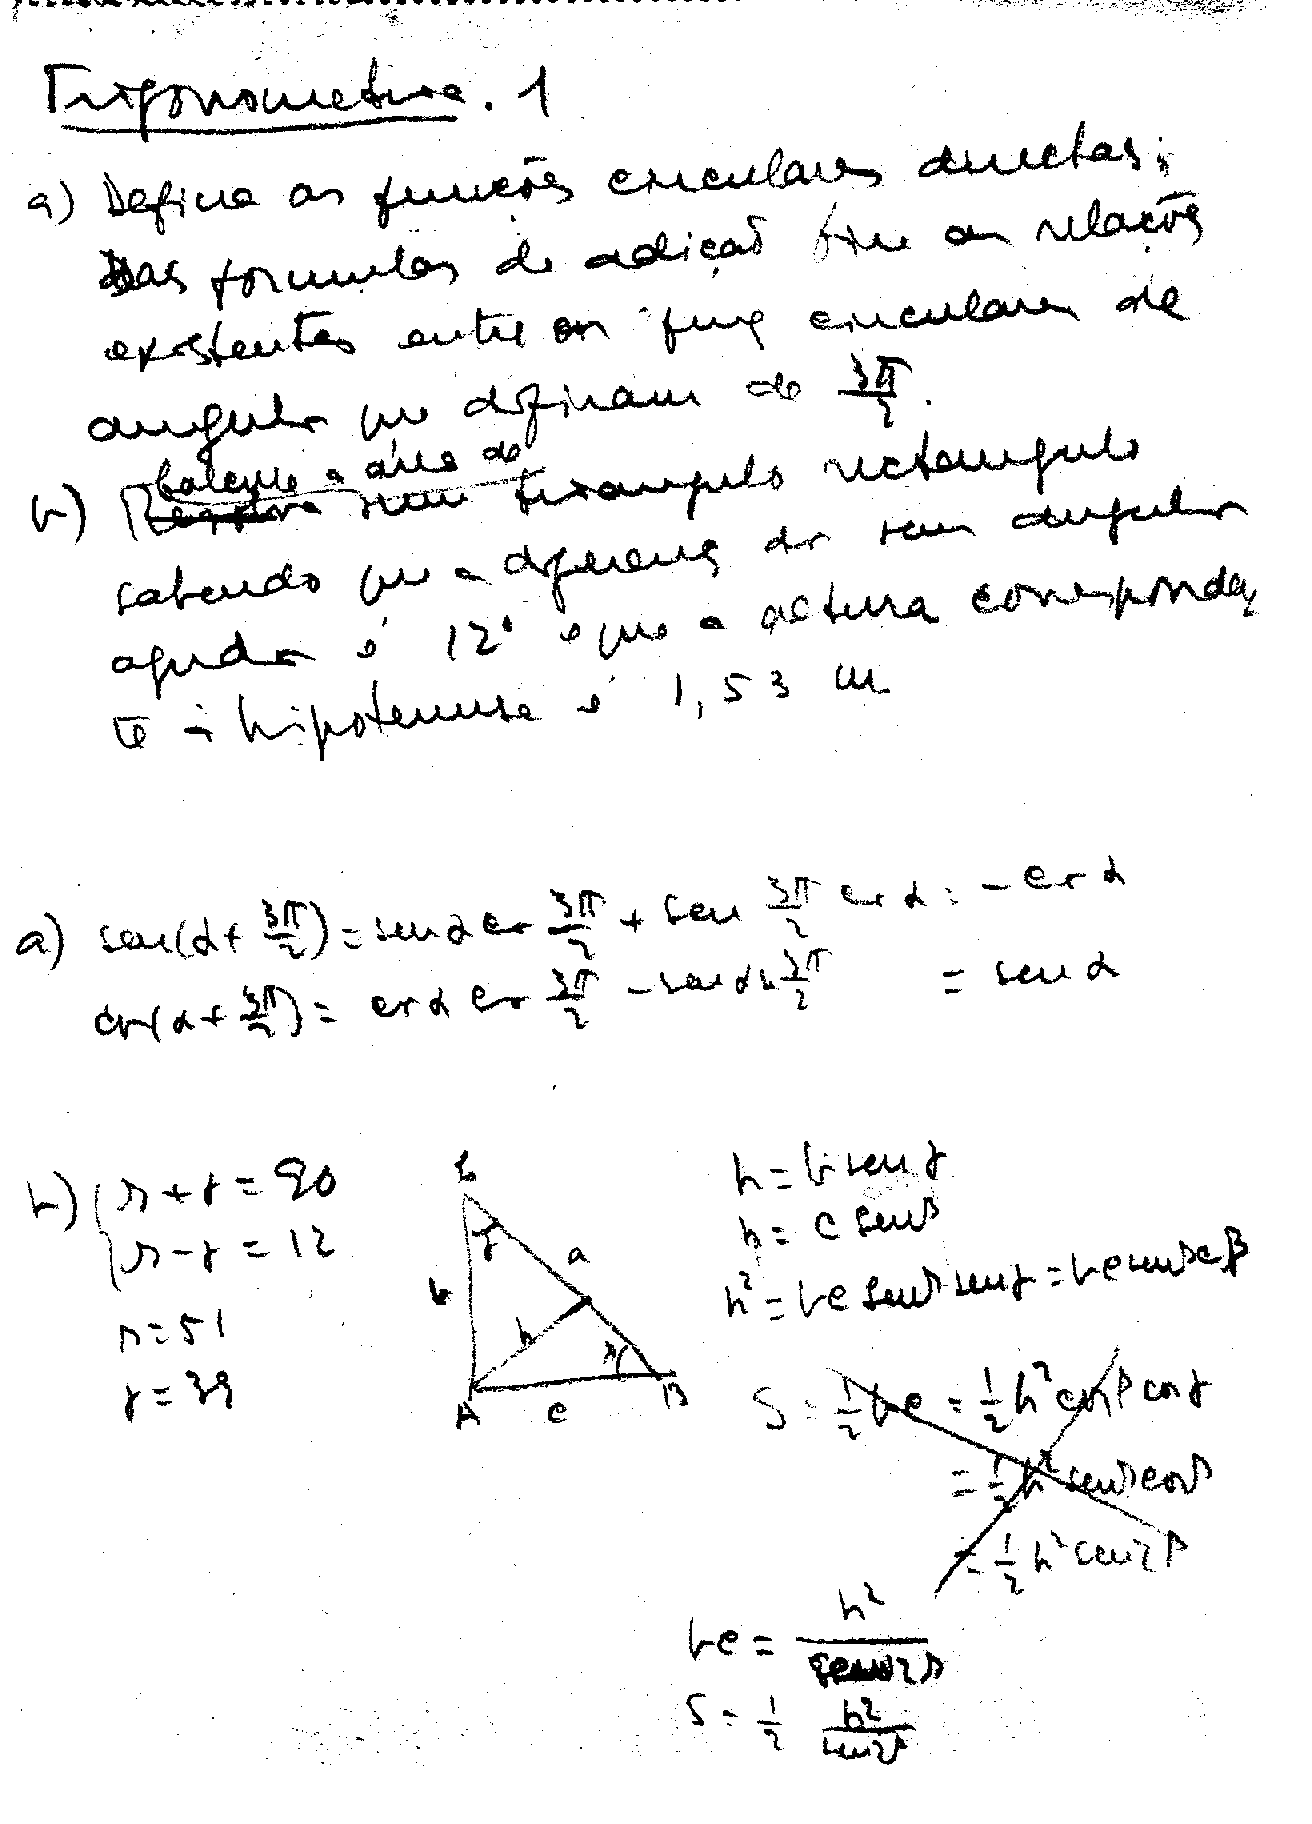 Trigonometria. 1
a) Define as funções circulares directas;
Das formulas de adição tire as relações
existentes entre as funç circulares de
angulos que difiram de 3π/2.
Calcule a área do
b) Resolva um triangulo rectangulo
sabendo que a diferença dos seus angulos
agudos é 12° e que a altura correspondem
te à hipotenusa é 1,53 m
a) sen(α+3π/2) = sen α cos 3π/2 + sen 3π/2 cos α = - cos α
cos(α+3π/2) = cos α cos 3π/2 - sen α sn 3π/2 = sen α
b) { β + γ = 90
β - γ = 12
β = 51
γ = 39
C
γ
a
b
h
β
A
c
B
h = b sen γ
h = c sen β
h² = bc sen β sen γ = bc sen β cos β
S = 1/2 bc = 1/2 h² cos β cos γ
= 1/2 h² sen β cos β
= 1/2 h² sen 2β
bc = h² / sen 2β
S = 1/2 h² / sen 2β